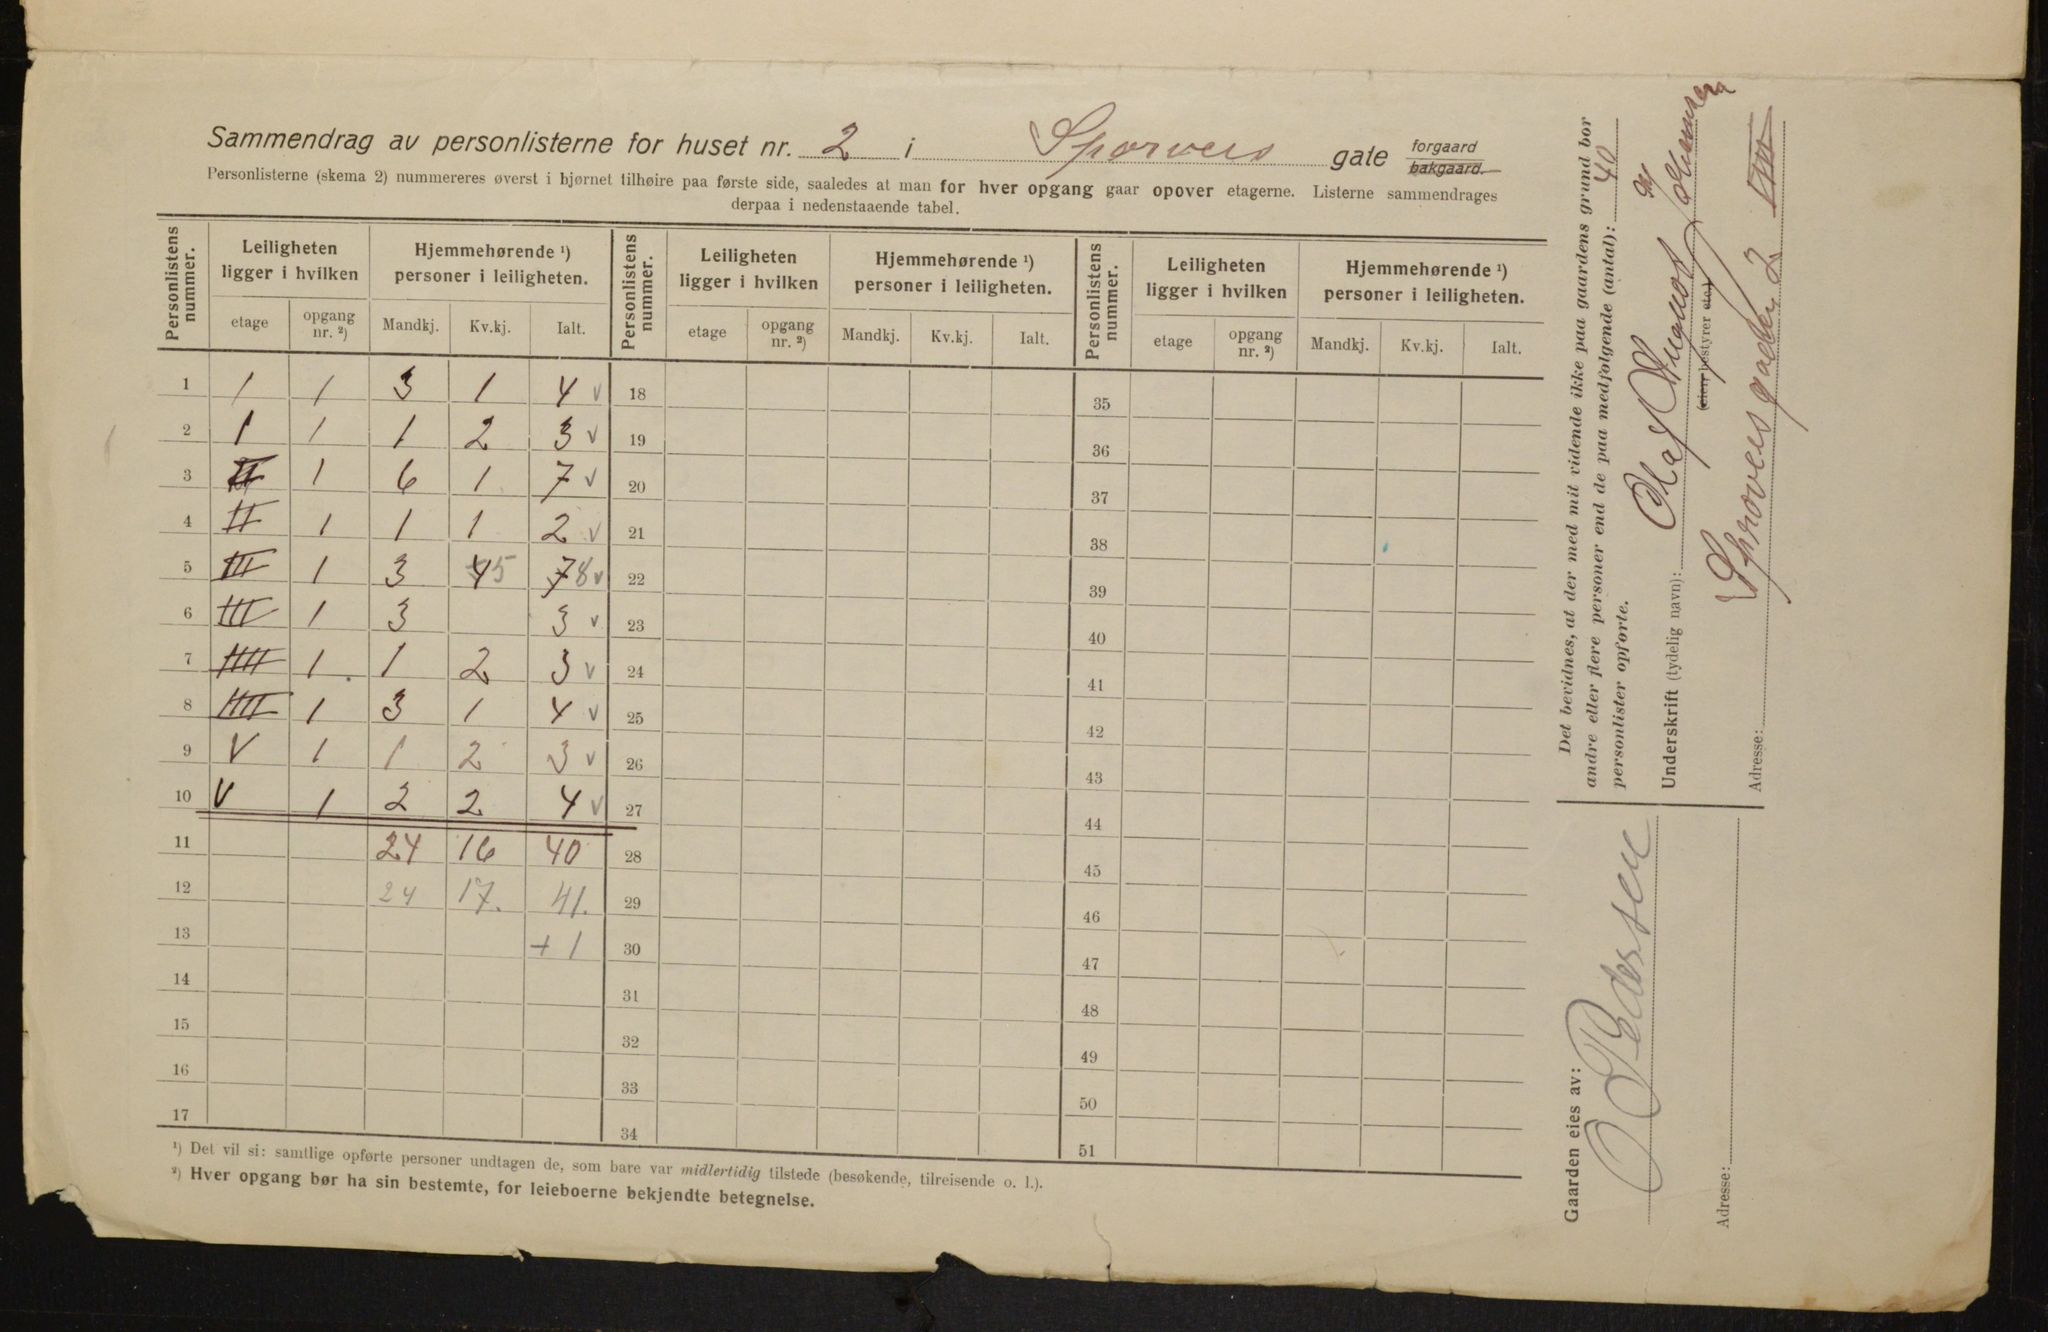 Sammendrag av personlisterne for huset nr. 2 i Sporveis gate forgaard bakgaard.
Personlisterne (skema 2) nummereres øverst i hjørnet tilhøire paa første side, saaledes at man for hver opgang gaar opover etagerne. Listerne sammendrages
derpaa i nedenstaaende tabel.
Personlistens nummer. Leiligheten ligger i hvilken Hjemmehørende ¹) personer i leiligheten. Personlistens nummer. Leiligheten ligger i hvilken Hjemmehørende ¹) personer i leiligheten. Personlistens nummer. Leiligheten ligger i hvilken Hjemmehørende ¹) personer i leiligheten.
etage opgang nr. ²) Mandkj. Kv.kj. Ialt. etage opgang nr. ²) Mandkj. Kv.kj. Ialt. etage opgang nr. ²) Mandkj. Kv.kj. Ialt.
1 I 1 3 1 4 v 18 35
2 I 1 1 2 3 v 19 36
3 II 1 6 1 7 v 20 37
4 II 1 1 1 2 v 21 38
5 III 1 3 4 5 7 8 v 22 39
6 III 1 3 3 v 23 40
7 IIII 1 1 2 3 v 24 41
8 IIII 1 3 1 4 v 25 42
9 V 1 1 2 3 v 26 43
10 V 1 2 2 4 v 27 44
11 24 16 40 28 45
12 24 17. 41. 29 46
13 + 1 30 47
14 31 48
15 32 49
16 33 50
17 34 51
¹) Det vil si: samtlige opførte personer undtagen de, som bare var midlertidig tilstede (besøkende, tilreisende o. l.).
²) Hver opgang bør ha sin bestemte, for leieboerne bekjendte betegnelse.
Det bevidnes, at der med mit vidende ikke paa gaardens grund bor
andre eller flere personer end de paa medfølgende (antal): 40
personlister opførte.
Underskrift (tydelig navn): Olaf August
(eier, bestyrer etc.)
Sporveisgaden 2
Adresse:
Gaarden eies av: O Pedersen
Adresse: